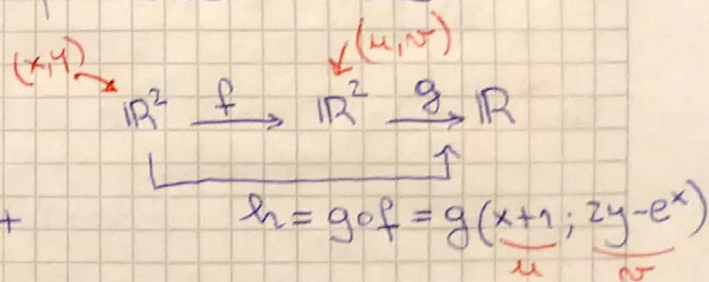 (x,y) (u,v)
ℝ² f ℝ² g ℝ
+ h = g∘f = g(x+1; 2y-eˣ)
u v